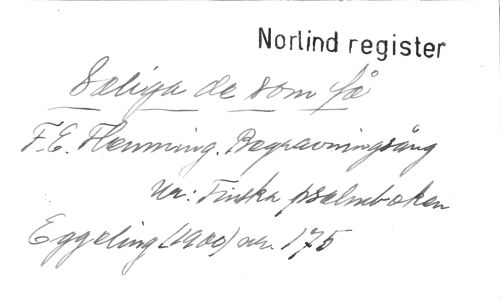 Norlind register
Saliga de som få
F.E. Flemming. Begravningssång
ur: Finska psalmboken
Eggeling (1900) nr. 175